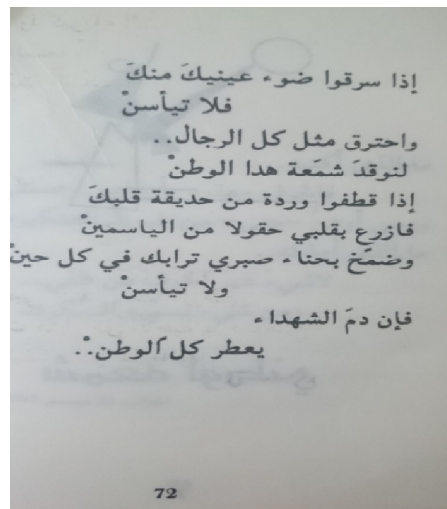 إذا سرقوا ضوء عينيكَ منكَ
فلا تيأسنْ
واحترق مثل كل الرجال..
لنوقدَ شمَعة هدا الوطنْ
إذا قطفوا وردة من حديقة قلبكَ
فازرع بقلبي حقولا من الياسمينْ
وضمّخ بحناء صبري ترابك في كل حينْ
ولا تيأسنْ
فإن دمَ الشهداء
يعطر كل الوطنْ..
72